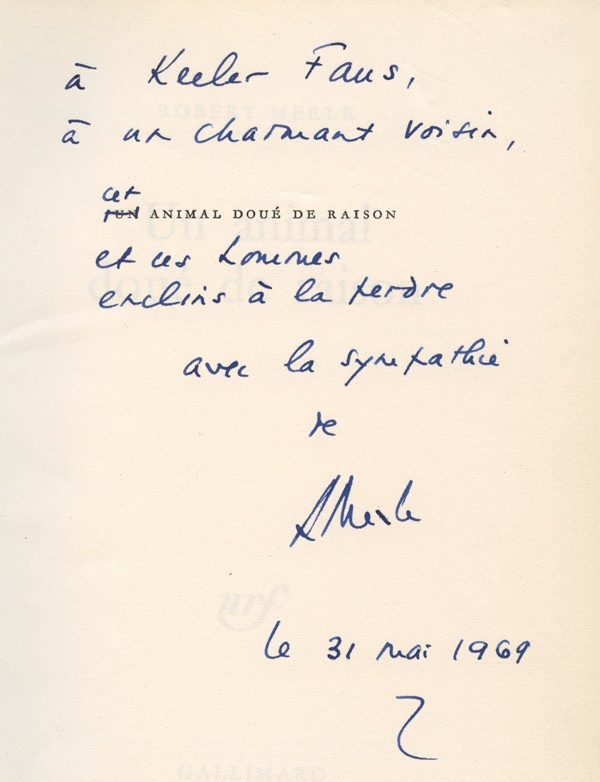 à Keeler Faus,
à un charmant voisin,
cet
UN ANIMAL DOUÉ DE RAISON
et ces hommes
enclins à la perdre
avec la sympathie
de
RMerle
le 31 mai 1969
ROBERT MERLE
Un animal
doué de raison
nrf
GALLIMARD